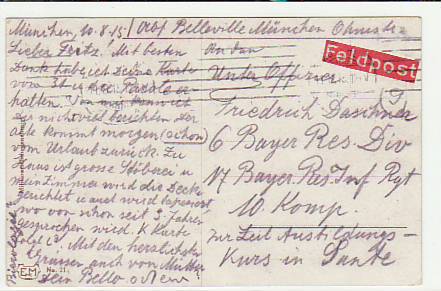 München, 10.8.15
Absf Belleville München
Lieber Fritz! Mit besten
Dank habe ich Deine Karte
vom 31
halten. Von mir kann ich
Dir nicht viel berichten. Der
alte kommt morgen (schon)
vom Urlaub zurück. Zu
Haus ist grosse Stöberei u
mein Zimmer wird die Decke
gerichtet u auch wird tapeziert
wo von schon seit 3 Jahren
gesprochen wird. K Karte
folgt. Mit den herzlichsten
Grüssen auch von Mutter
Dein
An den
Unter Offizier
Friedrich Daschner
6 Bayer Res. Div
17 Bayer. Res. Inf Rgt
10. Komp.
zur Zeit Ausbildungs-
Kurs in Sante
Feldpost
EM
No. 21.